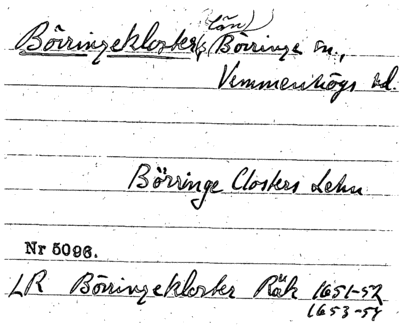 län)
Börringekloster(s Börringe sn.,
Vemmenhögs hd.
Börringe Closters Lehn
Nr 5096.
LR Börringekloster Räk 1651-52
1653-54